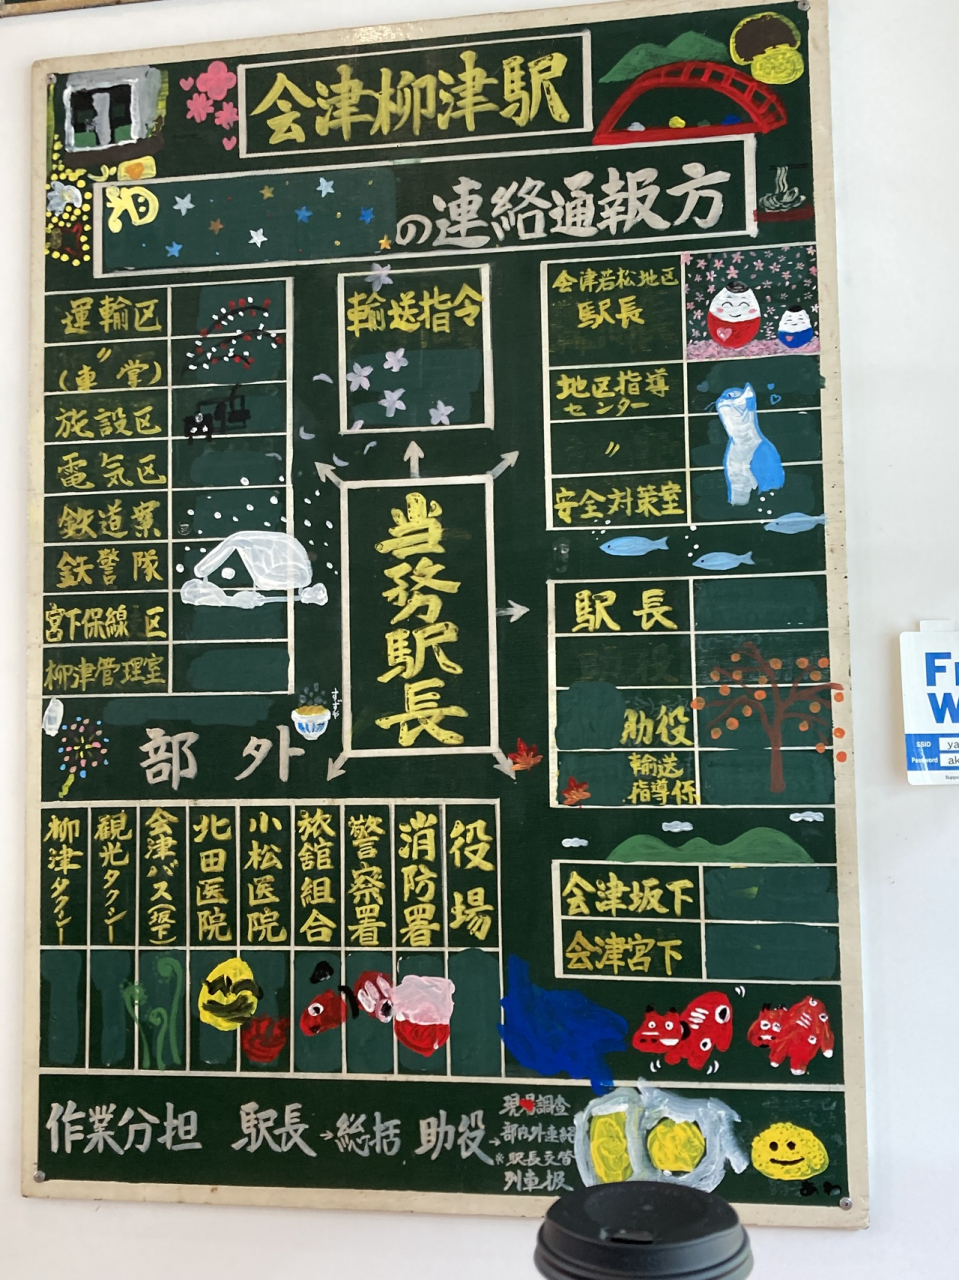 会津柳津駅
の連絡通報方
運輸区
〃
(車掌)
施設区
電気区
鉄道業
鉄警隊
宮下保線区
柳津管理室
輸送指令
会津若松地区
駅長
地区指導
センター
〃
安全対策室
当務駅長
駅長
助役
輸送
指導係
部外
柳津タクシー
観光タクシー
会津バス(坂下)
北田医院
小松医院
旅館組合
警察署
消防署
役場
会津坂下
会津宮下
作業分担 駅長→総括 助役→
部内外連絡
※駅長交替
列車扱
あわ
Fr
W
SSID ya
Password ak